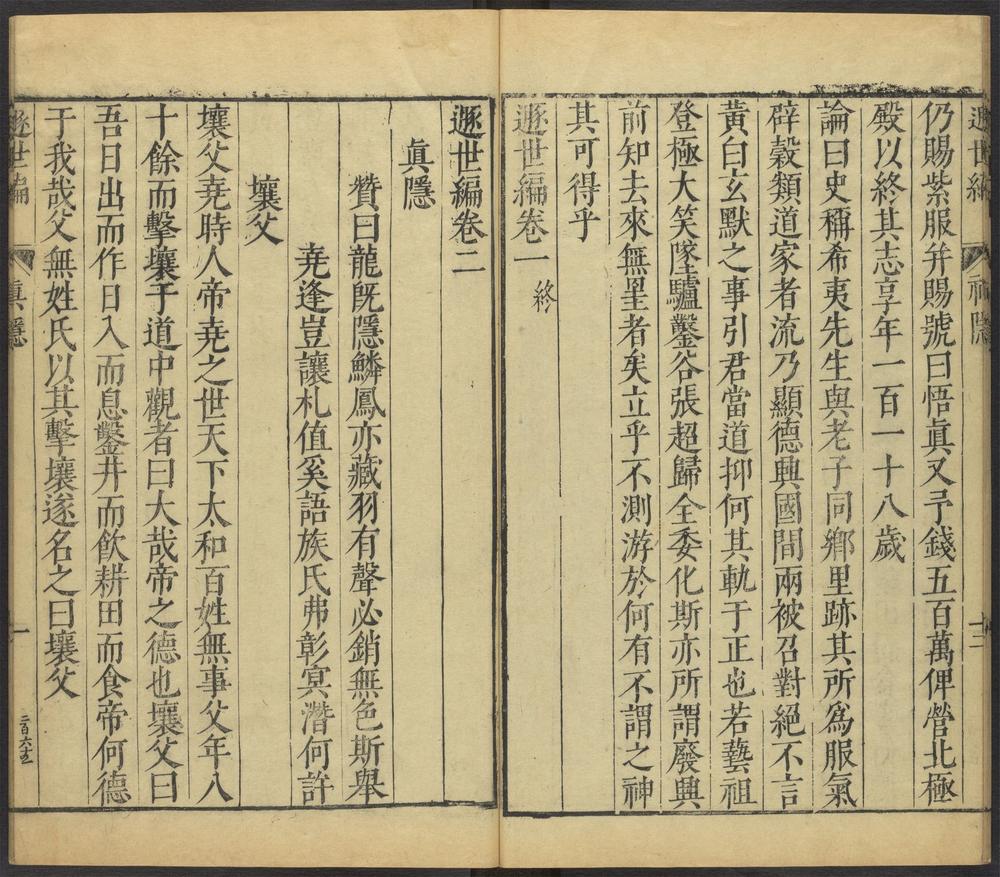 遯世編 神隱 十二
仍賜紫服幷賜號曰悟眞又予錢五百萬俾營北極
殿以終其志享年一百一十八歲
論曰史稱希夷先生與老子同鄉里跡其所爲服氣
辟穀類道家者流乃顯德興國間兩被召對絕不言
黃白玄默之事引君當道抑何其軌于正也若藝祖
登極大笑墜驢鑿谷張超歸全委化斯亦所謂廢興
前知去來無罣者矣立乎不測游於何有不謂之神
其可得乎
遯世編卷一 終
遯世編卷二
眞隱
贊曰龍旣隱鱗鳳亦藏羽有聲必銷無色斯舉
堯逢豈讓札值奚語族氏弗彰冥潛何許
壤父
壤父堯時人帝堯之世天下太和百姓無事父年八
十餘而擊壤于道中觀者曰大哉帝之德也壤父曰
吾日出而作日入而息鑿井而飲耕田而食帝何德
于我哉父無姓氏以其擊壤遂名之曰壤父
遯世編 眞隱 一